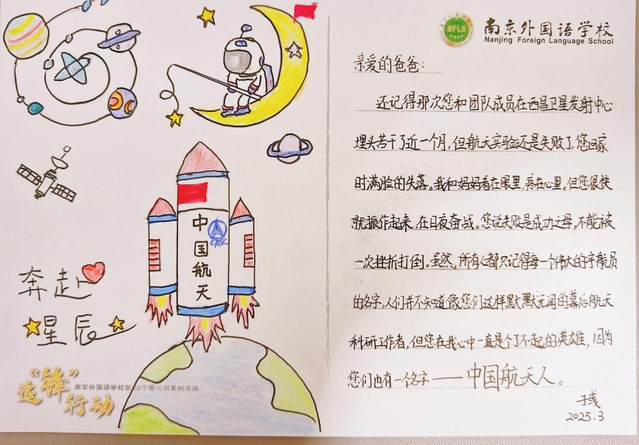 NFLS
南京外国语学校
Nanjing Foreign Language School
亲爱的爸爸:
还记得那次您和团队成员在西昌卫星发射中心
埋头苦干了近一个月,但航天实验还是失败了,您回家
时满脸的失落。我和妈妈看在眼里,疼在心里。但您很快
就振作起来,在日夜奋战。您说失败是成功之母,不能被
一次挫折打倒。虽然,所有人都只记得每一个伟大的宇航员
的名字,人们并不知道像您们这样默默无闻的幕后航天
科研工作者,但您在我心中一直是个了不起的英雄,因为
您们也有一个名字——中国航天人。
2025.3
中国航天
CASC
奔赴
星辰
“锋”
行动
南京外国语学校第
系列活动